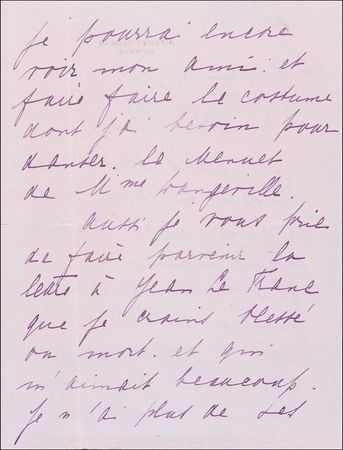 je pourrai encore
voir mon ami. et
faire faire le costume
dont j'ai besoin pour
danser. le Menuet
de Mme
aussi je vous prie
de faire parvenir la
lettre à Jean Le Franc
que je crains blessé
ou mort. et qui
m'aimait beaucoup.
Je n'ai plus de ses